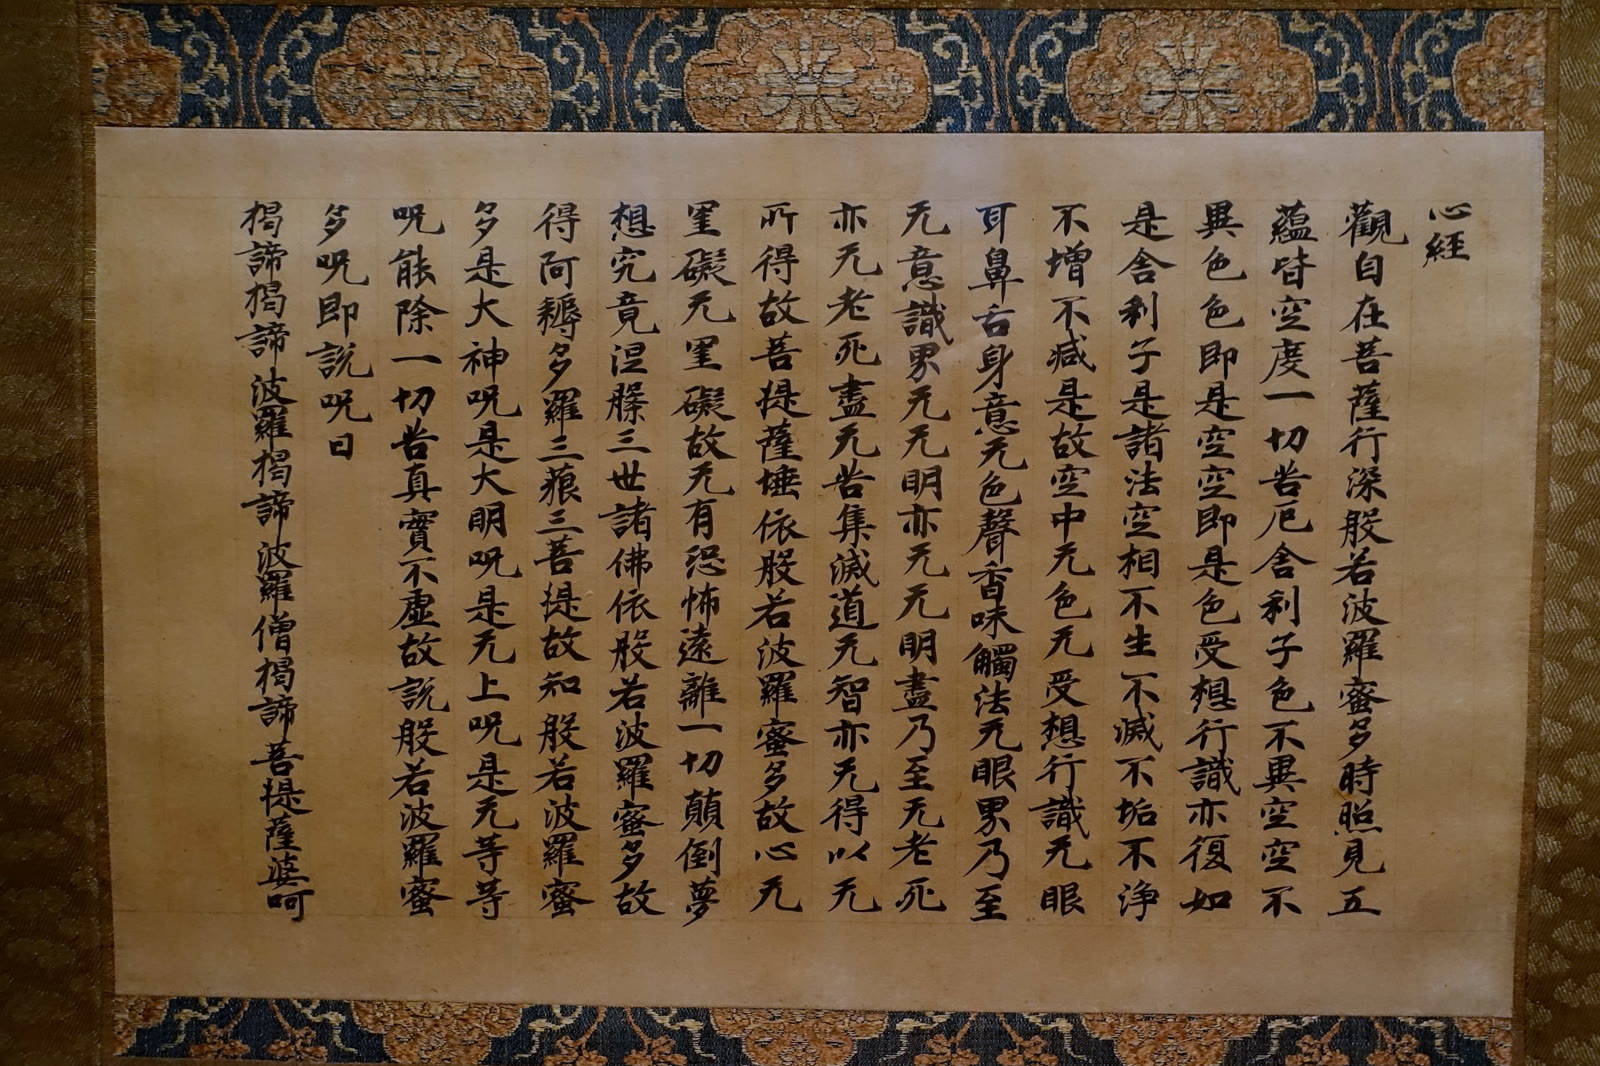 心経
觀自在菩薩行深般若波羅蜜多時照見五
蘊皆空度一切苦厄舍利子色不異空空不
異色色即是空空即是色受想行識亦復如
是舍利子是諸法空相不生不滅不垢不淨
不增不減是故空中无色无受想行識无眼
耳鼻舌身意无色聲香味觸法无眼界乃至
无意識界无无明亦无无明盡乃至无老死
亦无老死盡无苦集滅道无智亦无得以无
所得故菩提薩埵依般若波羅蜜多故心无
罣礙无罣礙故无有恐怖遠離一切顛倒夢
想究竟涅槃三世諸佛依般若波羅蜜多故
得阿耨多羅三藐三菩提故知般若波羅蜜
多是大神呪是大明呪是无上呪是无等等
呪能除一切苦真實不虛故說般若波羅蜜
多呪即說呪曰
揭諦揭諦波羅揭諦波羅僧揭諦菩提薩婆呵